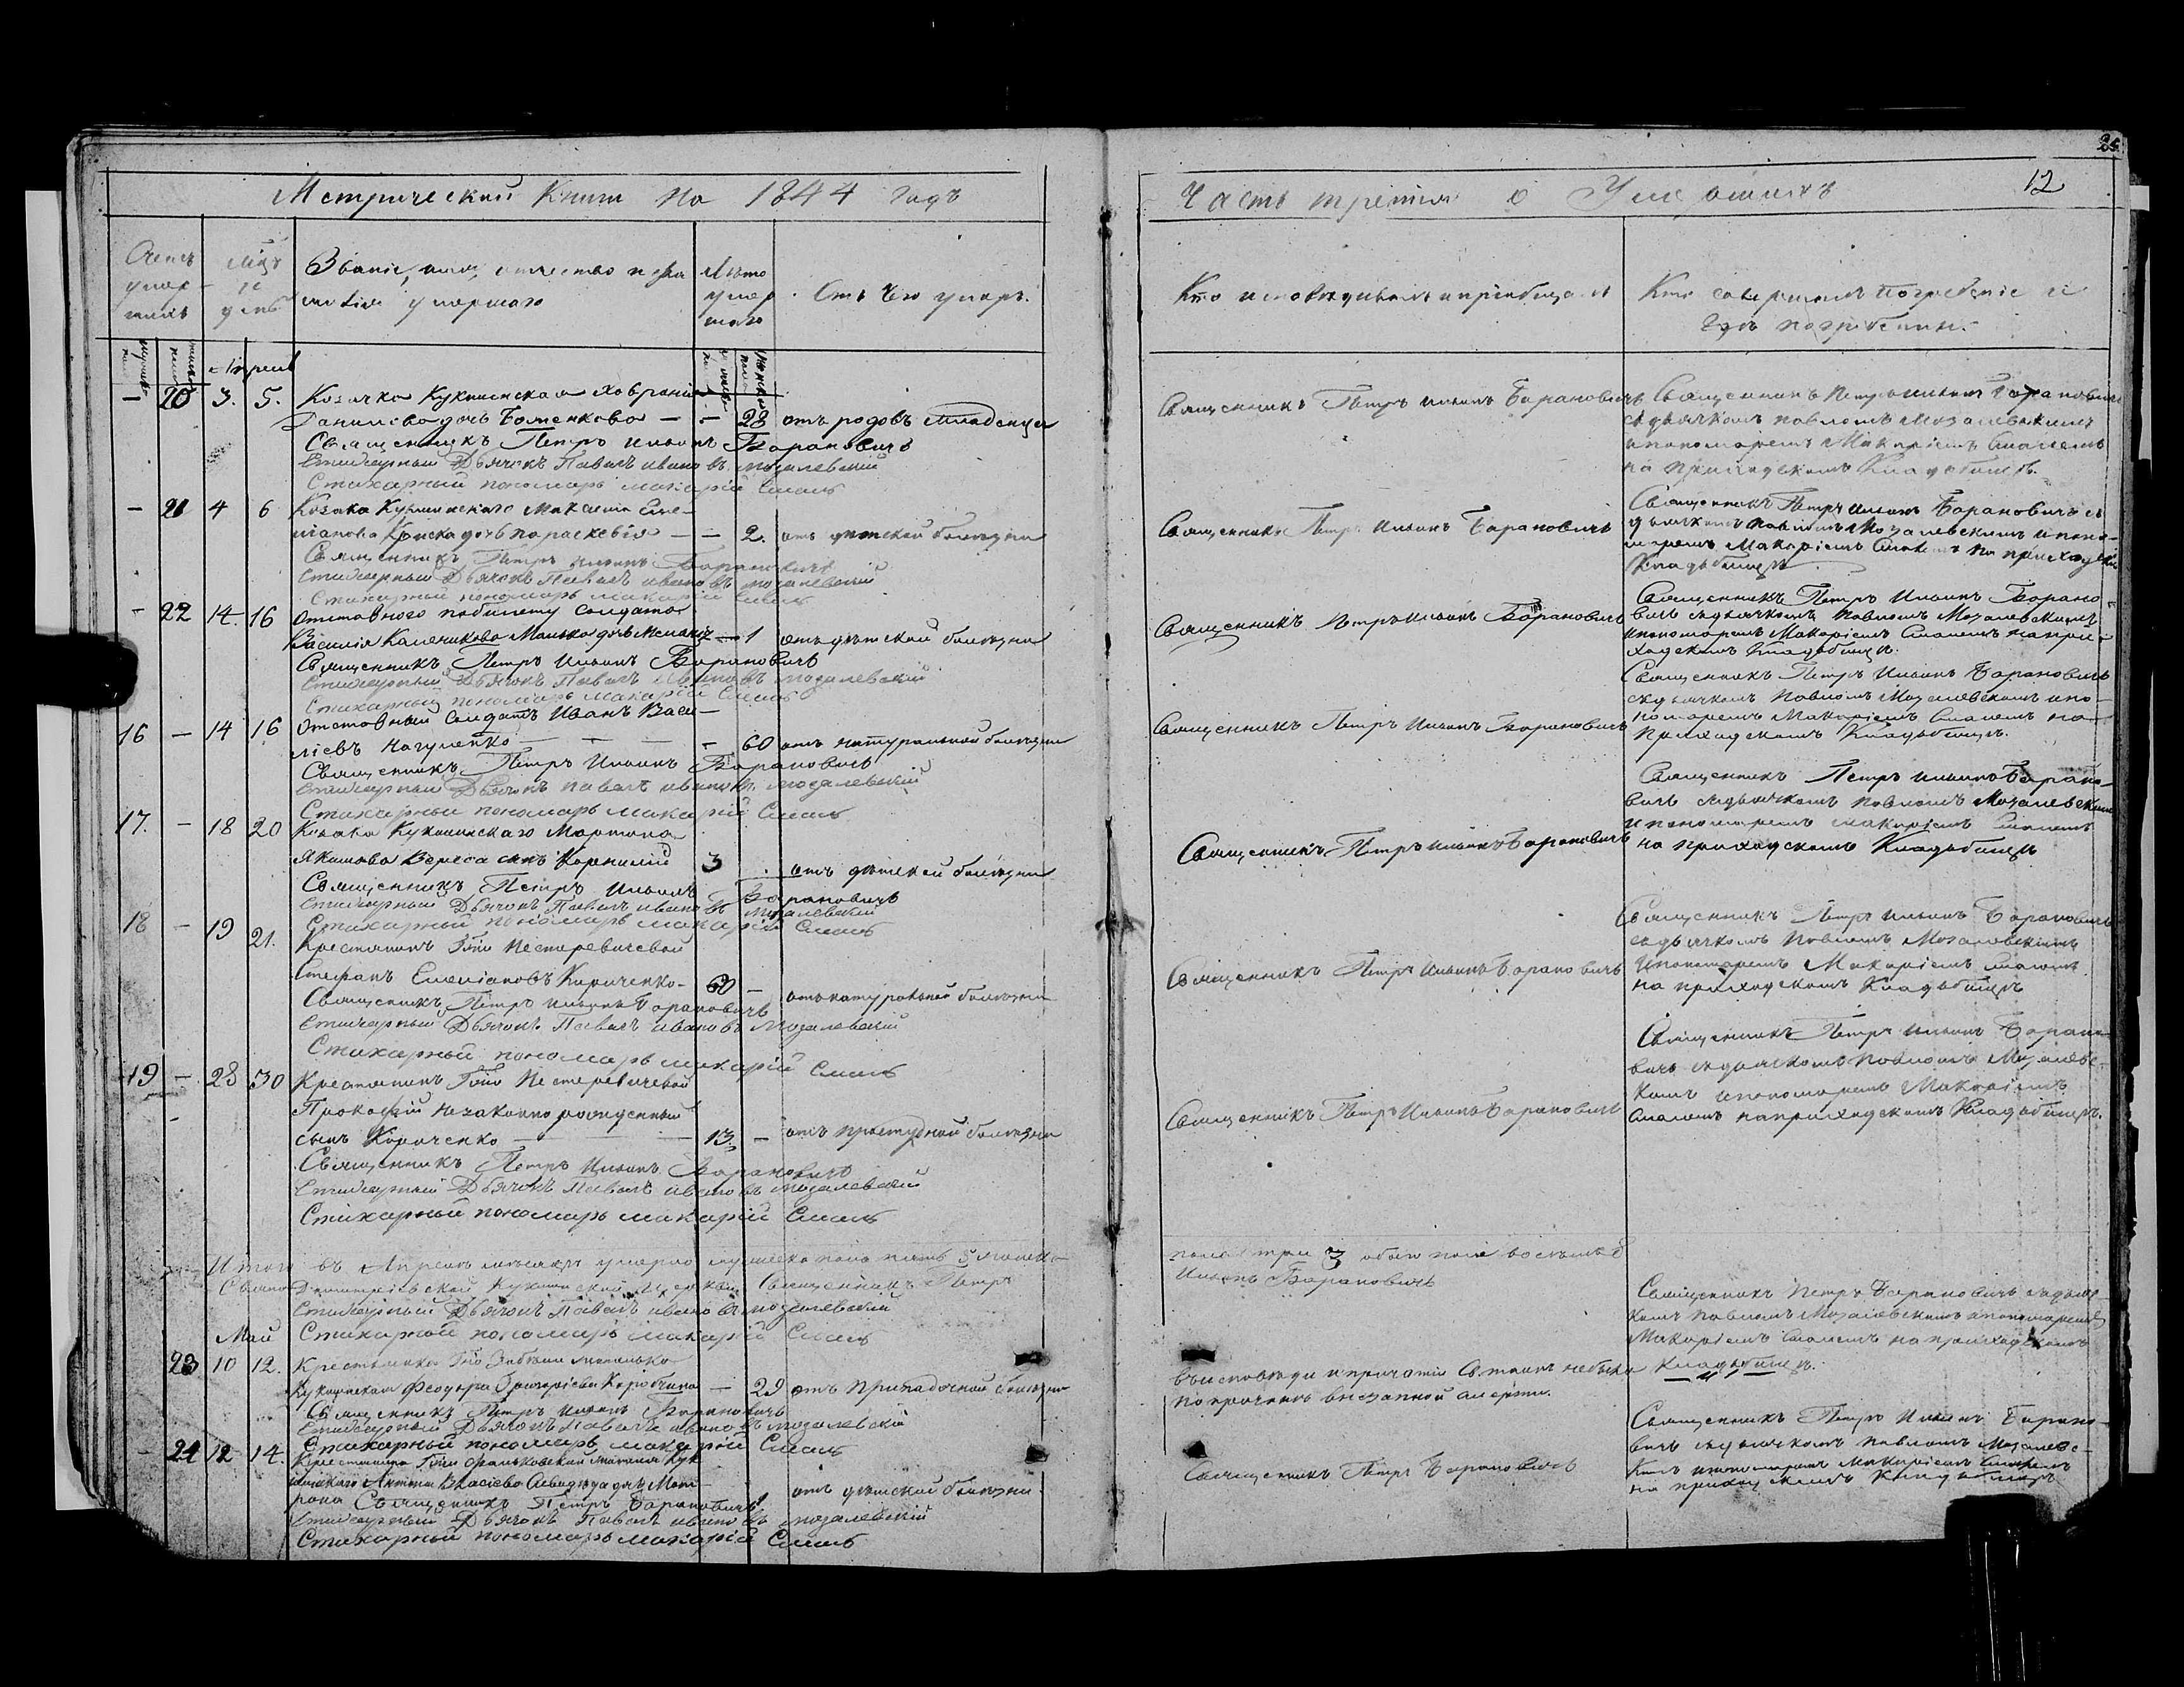 25
Метрической Книги На 1844 годъ
Часть третія о Умершихъ 12
Счетъ умершихъ
Мцъ и день
Званіе, имя, отчество и фамилія умершаго
Лѣто умершаго
Отъ чего умеръ.
Кто исповѣдывалъ и пріобщалъ
Кто совершалъ погребеніе и
гдѣ погребены.
Апрель
— 20 3. 5. Козачка Куклинская Хавронія
Данилова дочь — — 28 отъ родовъ младенца
Священникъ Петръ Ильинъ Барановичъ
Стихарный Дьячокъ Павелъ Ивановъ Мозалевскій
Стихарный пономарь Макарій Смаль
Священникъ Петръ Ильинъ Барановичъ
Священникъ Петръ Ильинъ Барановичъ
съ дьячкомъ Павломъ Мозалевскимъ
и пономаремъ Макаріемъ Смалемъ
на приходскомъ Кладбищѣ.
— 21 4 6 Козака Максима Еме-
льянова дочь Параскевія — — 2. отъ дѣтской болѣзни
Священникъ Петръ Ильинъ Барановичъ
Стихарный Дьячокъ Павелъ Ивановъ Мозалевскій
Стихарный пономарь Макарій Смаль
Священникъ Петръ Ильинъ Барановичъ
Священникъ Петръ Ильинъ Барановичъ съ
дьячкомъ Павломъ Мозалевскимъ и поно-
маремъ Макаріемъ Смалемъ на приходскомъ
Кладбищѣ
— 22 14. 16 Отставного по билету Солдата
Василія дочь — 1 отъ дѣтской болѣзни
Священникъ Петръ Ильинъ Барановичъ
Стихарный Дьячокъ Павелъ Ивановъ Мозалевскій
Стихарный пономарь Макарій Смаль
Священникъ Петръ Ильинъ Барановичъ
Священникъ Петръ Ильинъ Барано
вичъ съ дьячкомъ Павломъ Мозалевскимъ
и пономаремъ Макаріемъ Смалемъ на при-
ходскомъ Кладбищѣ.
16 — 14 16 Отставный Солдатъ Иванъ Васи-
ліевъ Нагуленко — 60 отъ натуральной болѣзни
Священникъ Петръ Ильинъ Барановичъ
Стихарный Дьячокъ Павелъ Ивановъ Мозалевскій
Стихарный пономарь Макарій Смаль
Священникъ Петръ Ильинъ Барановичъ
Священникъ Петръ Ильинъ Барановичъ
съ дьячкомъ Павломъ Мозалевскимъ и по-
номаремъ Макаріемъ Смалемъ на
приходскомъ Кладбищѣ.
17. — 18 20 Козака Куклинскаго Мартина
Якимова Вереса сынъ Корнилій 3 отъ дѣтской болѣзни
Священникъ Петръ Ильинъ Барановичъ
Стихарный Дьячокъ Павелъ Ивановъ Мозалевскій
Стихарный пономарь Макарій Смаль
Священникъ Петръ Ильинъ Барановичъ
Священникъ Петръ Ильинъ Барано-
вичъ съ дьячкомъ Павломъ Мозалевскимъ
и пономаремъ Макаріемъ Смалемъ
на приходскомъ Кладбищѣ
18 — 19 21. Крестянинъ Гжи Нестеревичевой
Стефанъ Емеліановъ Кириченко — 60 — отъ натуральной болѣзни
Священникъ Петръ Ильинъ Барановичъ
Стихарный Дьячокъ Павелъ Ивановъ Мозалевскій
Стихарный пономарь Макарій Смаль
Священникъ Петръ Ильинъ Барановичъ
Священникъ Петръ Ильинъ Барановичъ
съ дьячкомъ Павломъ Мозалевскимъ
и пономаремъ Макаріемъ Смалемъ
на приходскомъ Кладбищѣ
19 — 28 30 Крестянинъ Гжи Нестеревичевой
Прокофій незаконно рожденный
сынъ Кириченко — 13. — отъ простудной болѣзни
Священникъ Петръ Ильинъ Барановичъ
Стихарный Дьячокъ Павелъ Ивановъ Мозалевскій
Стихарный пономарь Макарій Смаль
Священникъ Петръ Ильинъ Барановичъ
Священникъ Петръ Ильинъ Барано-
вичъ съ дьячкомъ Павломъ Мозалевс-
кимъ и пономаремъ Макаріемъ
Смалемъ на приходскомъ Кладбищѣ.
Итого въ Апрелѣ мѣсяцѣ умерло мужеска пола пять 5 женска
пола три 3 обоего пола восемь 8
Свято Димитріевской церкви Священникъ Петръ
Ильинъ Барановичъ
Стихарный Дьячокъ Павелъ Ивановъ Мозалевскій
Стихарный пономарь Макарій Смаль
Май
23 10 12. Крестьянка Гжи
Феодора Григоріева — 29 отъ припадочной болѣзни
Священникъ Петръ Ильинъ Барановичъ
Стихарный Дьячокъ Павелъ Ивановъ Мозалевскій
Стихарный пономарь Макарій Смаль
въ исповѣди и причастіи Св. Таинъ небыла
по причинѣ внезапной смерти.
Священникъ Петръ Барановичъ съ дьяч-
комъ Павломъ Мозалевскимъ и пономаремъ
Макаріемъ Смалемъ на приходскомъ
Кладбищѣ.
— 24 12 14. Крестянина Гжи
дочь Мот-
рона 1 отъ дѣтской болѣзни.
Священникъ Петръ Барановичъ
Стихарный Дьячокъ Павелъ Ивановъ Мозалевскій
Стихарный пономарь Макарій Смаль
Священникъ Петръ Барановичъ
Священникъ Петръ Ильинъ Барано-
вичъ съ дьячкомъ Павломъ Мозалевс-
кимъ и пономаремъ Макаріемъ Смалемъ
на приходскомъ Кладбищѣ